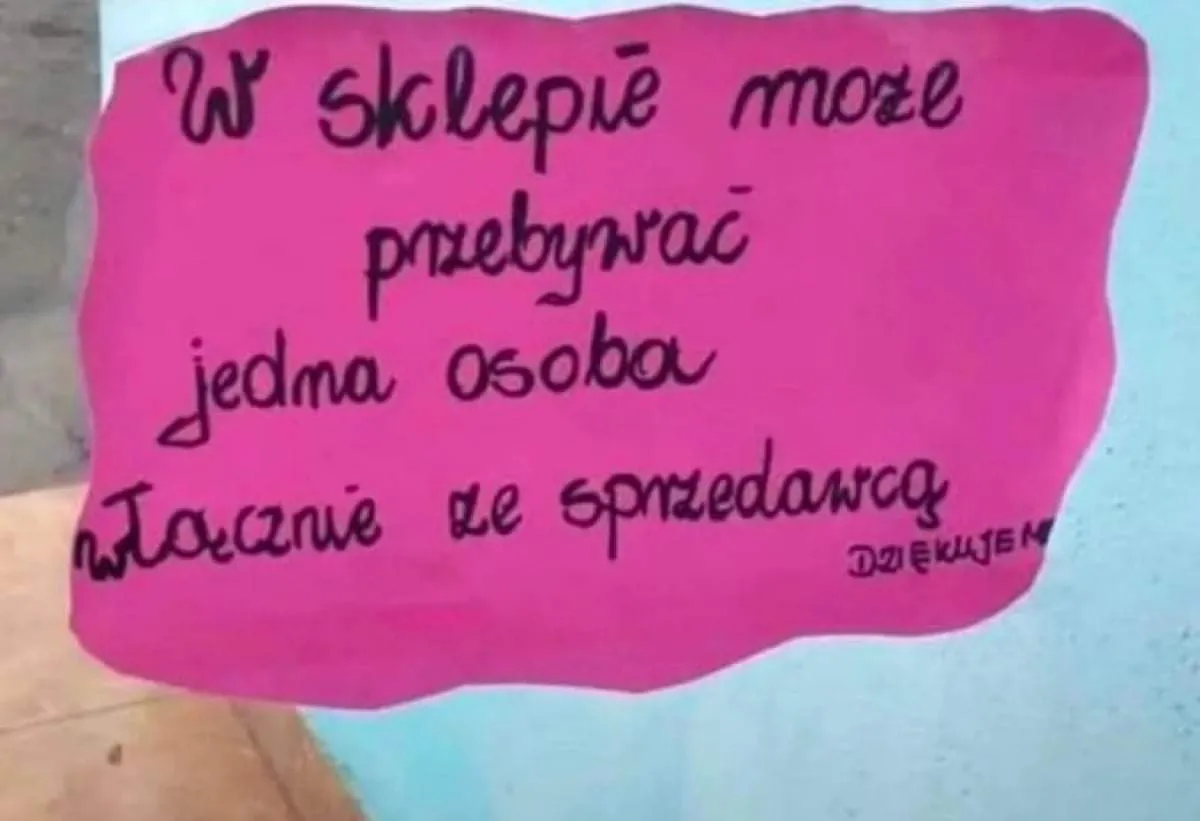 W sklepie może
przebywać
jedna osoba
włącznie ze sprzedawcą
DZIĘKUJEMY